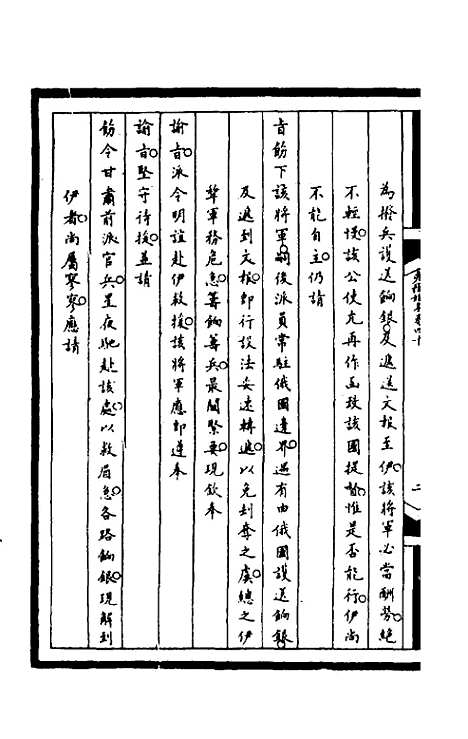 為撥兵護送餉銀及遞送文報至伊該將軍必當酬勞絕
不輕慢該公使允再作函致該國提督惟是否能行伊尚
不能自主仍請
旨飭下該將軍嗣後派員常駐俄國邊界遇有由俄國護送餉銀
及遞到文報即行設法妥速轉遞以免刦奪之虞總之伊
犂軍務危急籌餉籌兵最關緊要現欽奉
諭旨派令明誼赴伊救援該將軍應即遵奉
諭旨堅守待援並請
飭令甘肅前派官兵星夜馳赴該處以救眉急各路餉銀現解到
伊者尚屬寥寥應請
二